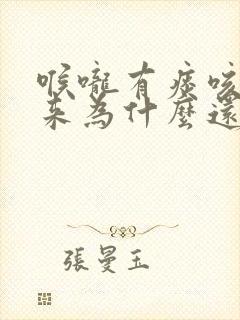 喉嚨有痰咳
來為什麼還
張曼玉